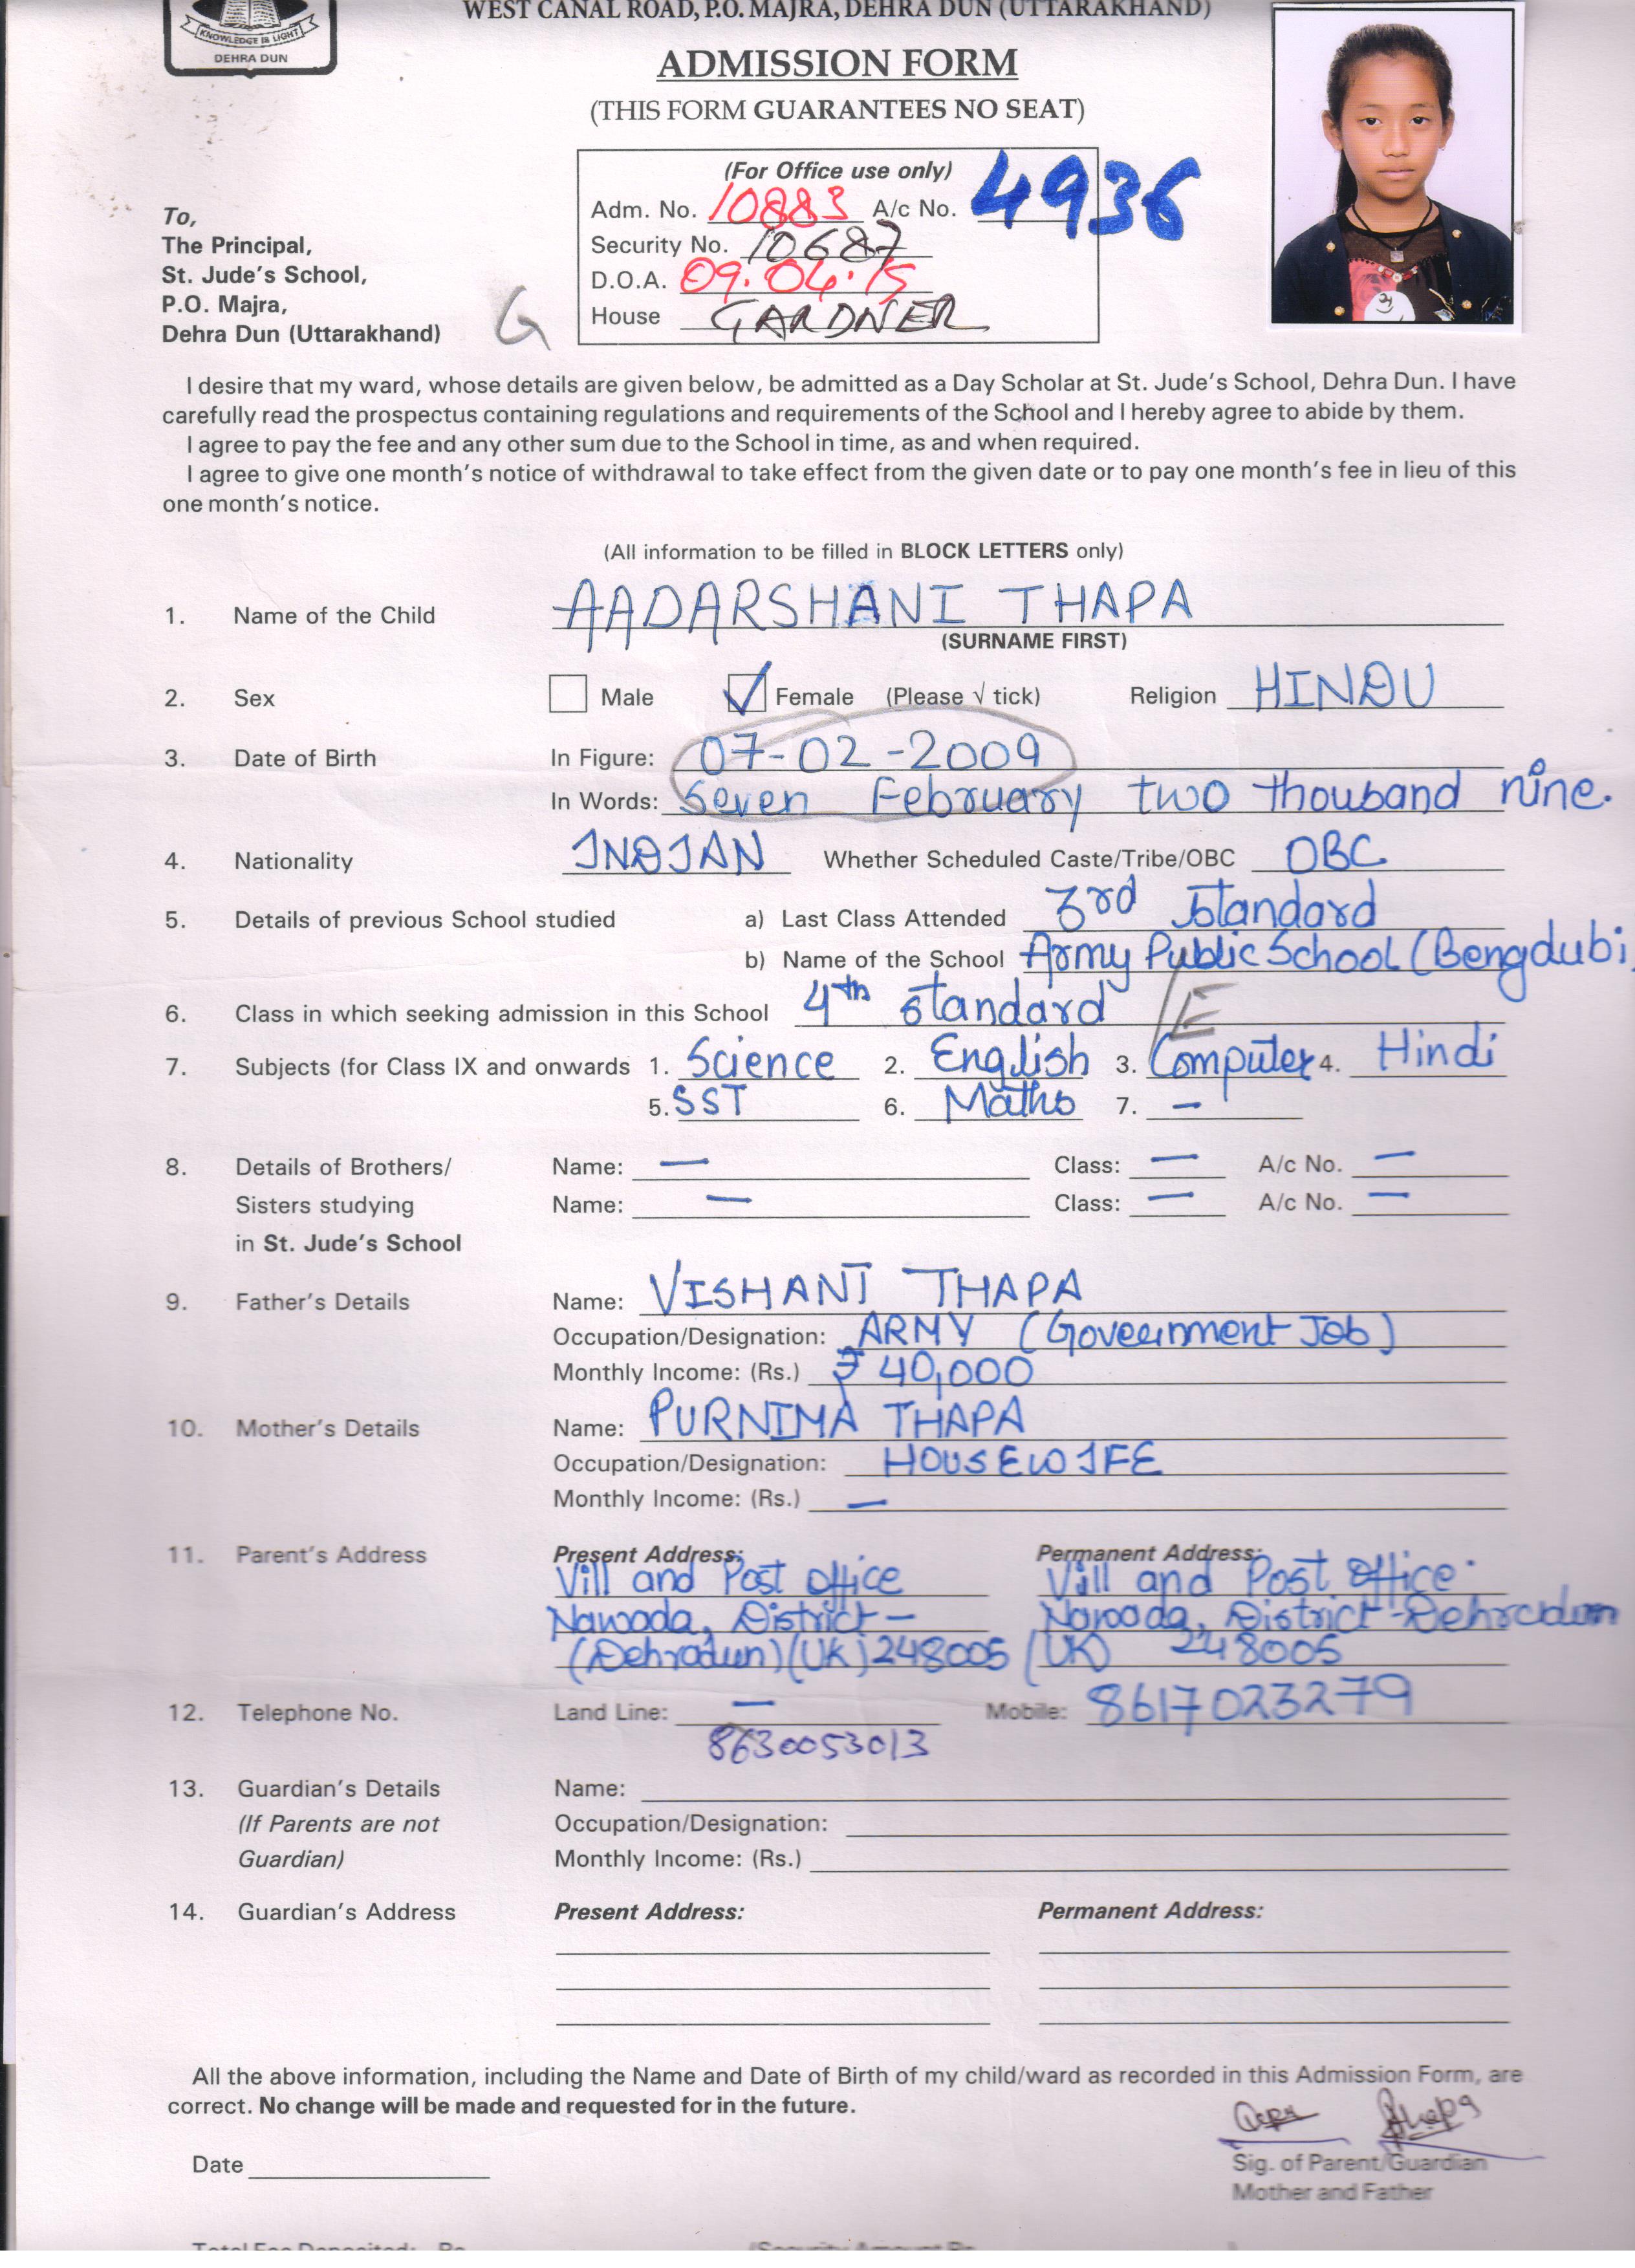 WEST CANAL ROAD, P.O. MAJRA, DEHRA DUN (UTTARAKHAND)
KNOWLEDGE IS LIGHT
DEHRA DUN
ADMISSION FORM
(THIS FORM GUARANTEES NO SEAT)
(For Office use only)
Adm. No. 10883 A/c No. 4936
Security No. 10687
D.O.A. 09.04.15
House GARDNER
To,
The Principal,
St. Jude's School,
P.O. Majra,
Dehra Dun (Uttarakhand)
G
I desire that my ward, whose details are given below, be admitted as a Day Scholar at St. Jude's School, Dehra Dun. I have
carefully read the prospectus containing regulations and requirements of the School and I hereby agree to abide by them.
I agree to pay the fee and any other sum due to the School in time, as and when required.
I agree to give one month's notice of withdrawal to take effect from the given date or to pay one month's fee in lieu of this
one month's notice.
(All information to be filled in BLOCK LETTERS only)
1. Name of the Child AADARSHANI THAPA
(SURNAME FIRST)
2. Sex Male Female (Please √ tick) Religion HINDU
3. Date of Birth In Figure: 07-02-2009
In Words: Seven February two thousand nine.
4. Nationality INDIAN Whether Scheduled Caste/Tribe/OBC OBC
5. Details of previous School studied a) Last Class Attended 3rd Standard
b) Name of the School Army Public School (Bengdubi
6. Class in which seeking admission in this School 4th standard E
7. Subjects (for Class IX and onwards 1. Science 2. English 3. Computer 4. Hindi
5. SST 6. Maths 7. —
8. Details of Brothers/ Name: — Class: — A/c No. —
Sisters studying Name: — Class: — A/c No. —
in St. Jude's School
9. Father's Details Name: VISHANT THAPA
Occupation/Designation: ARMY (Government Job)
Monthly Income: (Rs.) ₹ 40,000
10. Mother's Details Name: PURNIMA THAPA
Occupation/Designation: HOUSEWIFE
Monthly Income: (Rs.) —
11. Parent's Address Present Address: Permanent Address:
Vill and Post Office Vill and Post Office.
Nawada, District – Nawada, District-Dehradun
(Dehradun)(UK)248005 (UK) 248005
12. Telephone No. Land Line: — Mobile: 8617023279
8630053013
13. Guardian's Details Name:
(If Parents are not Occupation/Designation:
Guardian) Monthly Income: (Rs.)
14. Guardian's Address Present Address: Permanent Address:
All the above information, including the Name and Date of Birth of my child/ward as recorded in this Admission Form, are
correct. No change will be made and requested for in the future.
Date
Sig. of Parent/Guardian
Mother and Father